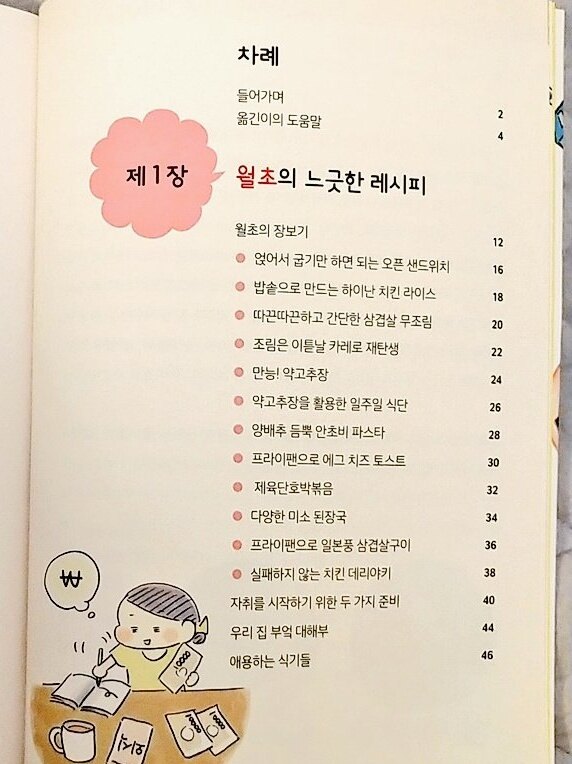 차례
들어가며 2
옮긴이의 도움말 4
제1장
월초의 느긋한 레시피
월초의 장보기 12
얹어서 굽기만 하면 되는 오픈 샌드위치 16
밥솥으로 만드는 하이난 치킨 라이스 18
따끈따끈하고 간단한 삼겹살 무조림 20
조림은 이튿날 카레로 재탄생 22
만능! 약고추장 24
약고추장을 활용한 일주일 식단 26
양배추 듬뿍 안초비 파스타 28
프라이팬으로 에그 치즈 토스트 30
제육단호박볶음 32
다양한 미소 된장국 34
프라이팬으로 일본풍 삼겹살구이 36
실패하지 않는 치킨 데리야키 38
자취를 시작하기 위한 두 가지 준비 40
우리 집 부엌 대해부 44
애용하는 식기들 46
₩